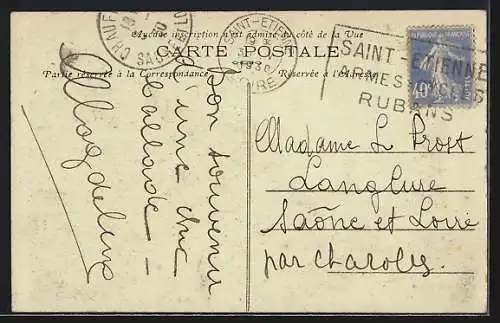 Aucune inscription n'est admise du côté de la Vue
CARTE POSTALE
Partie réservée à la Correspondance
Réservée à l'Adresse
SAINT-ETIENNE
LOIRE
SAINT-ETIENNE
ARMES CYCLES
RUBANS
40c
Bon souvenir
d'une
ballade —
Magdeleine
Madame L Prost
Langlure
Saône et Loire
par Charolles